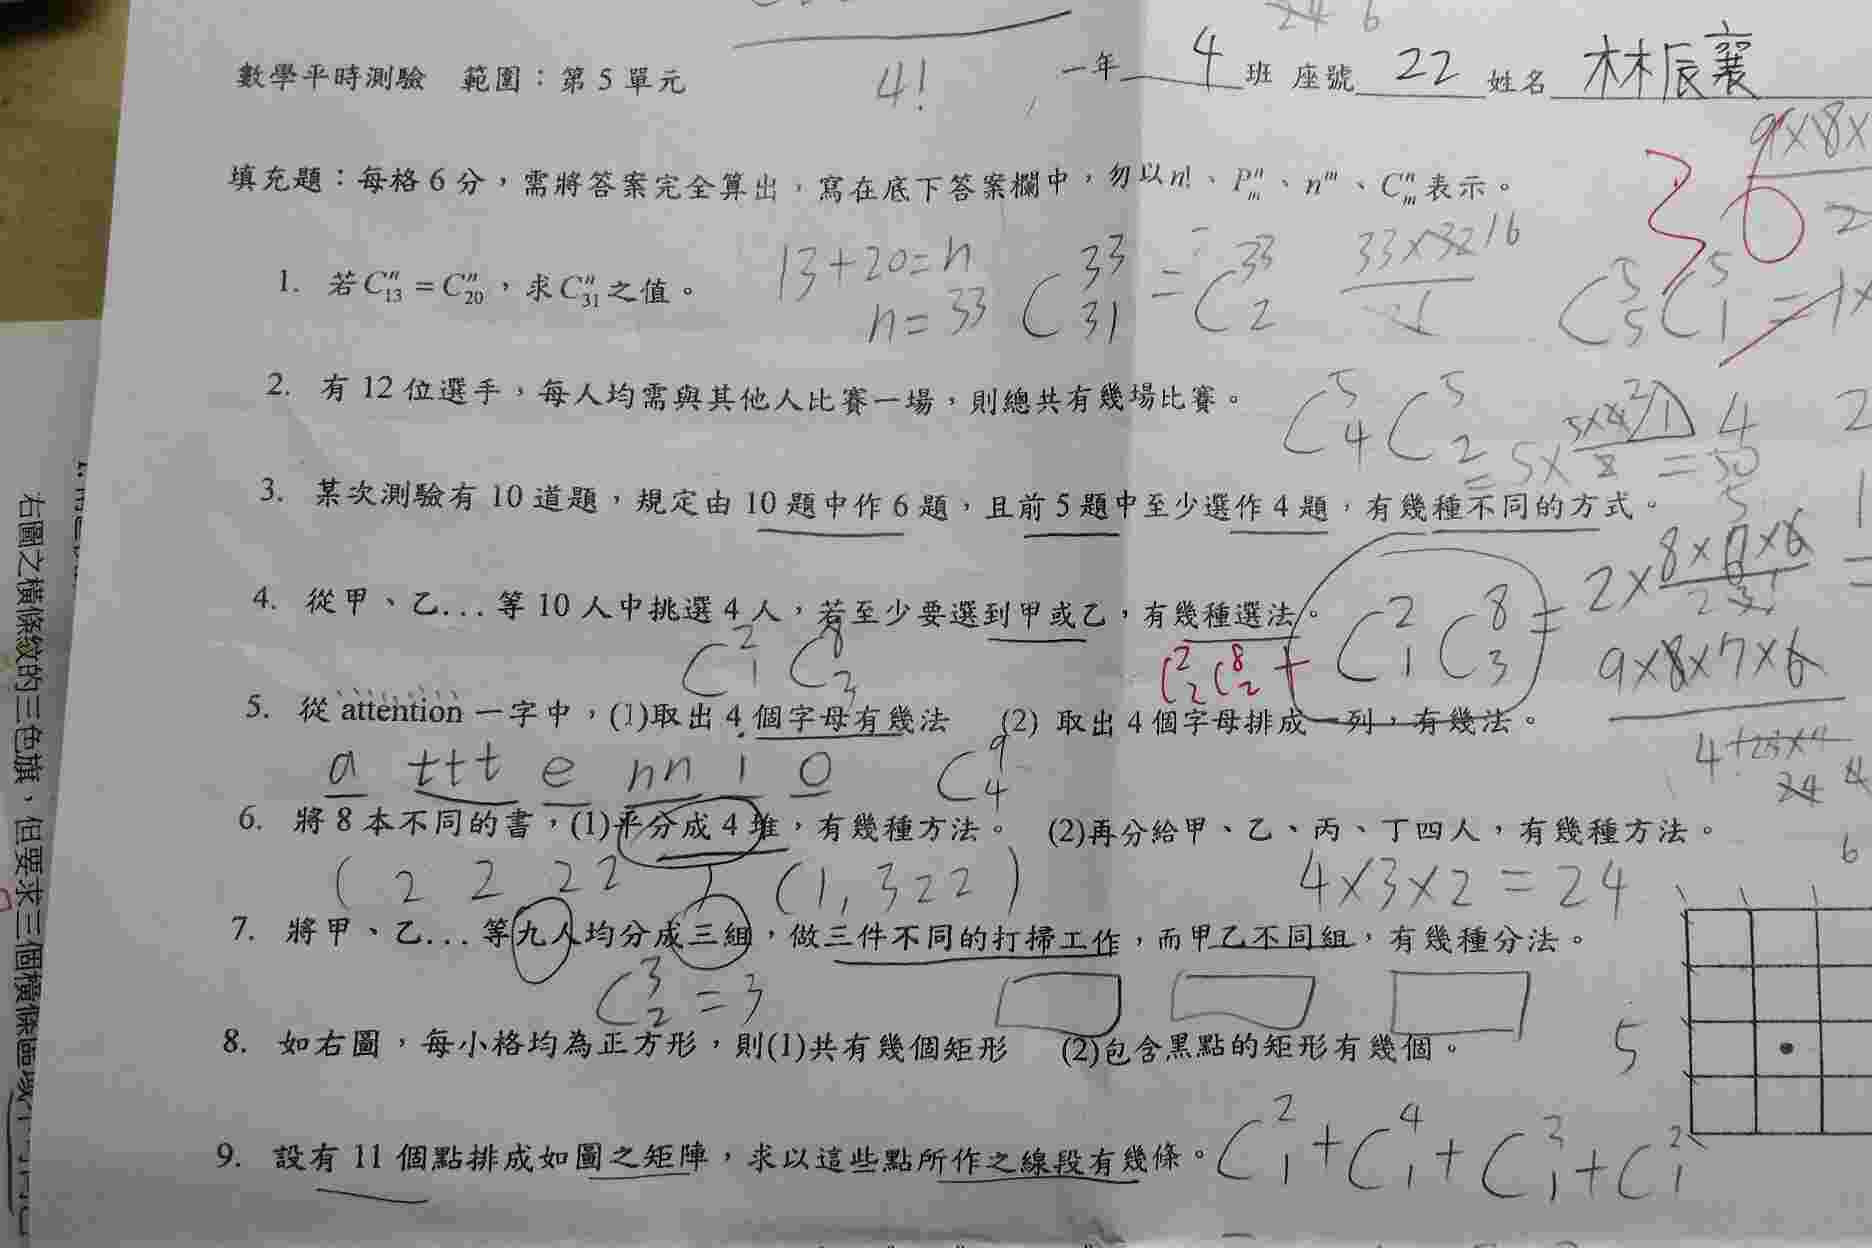 數學平時測驗 範圍：第 5 單元
4!
一年 4 班 座號 22 姓名 林辰襄
填充題：每格 6 分，需將答案完全算出，寫在底下答案欄中，勿以 n!、P^n_m、n^m、C^n_m 表示。
9×8×
36
2
1. 若 C^n_13 = C^n_20，求 C^n_31 之值。
13+20=n
n=33
C^33_31 = C^33_2
33×32 16
C^5_5 C^5_1 = 1×
2. 有 12 位選手，每人均需與其他人比賽一場，則總共有幾場比賽。
C^5_4 C^5_2
= 5×
= 50
3. 某次測驗有 10 道題，規定由 10 題中作 6 題，且前 5 題中至少選作 4 題，有幾種不同的方式。
4. 從甲、乙...等 10 人中挑選 4 人，若至少要選到甲或乙，有幾種選法。
C^2_1 C^8_3
C^2_2 C^8_2 +
C^2_1 C^8_3 = 2×
9×8×7×6
5. 從 attention 一字中，(1)取出 4 個字母有幾法 (2) 取出 4 個字母排成一列，有幾法。
a ttt e nn i o
C^9_4
24
6. 將 8 本不同的書，(1)平分成 4 堆，有幾種方法。 (2)再分給甲、乙、丙、丁四人，有幾種方法。
( 2 2 2 2
(1, 3 2 2 )
4×3×2=24
6
7. 將甲、乙...等九人均分成三組，做三件不同的打掃工作，而甲乙不同組，有幾種分法。
C^3_2 = 3
8. 如右圖，每小格均為正方形，則(1)共有幾個矩形 (2)包含黑點的矩形有幾個。
5
9. 設有 11 個點排成如圖之矩陣，求以這些點所作之線段有幾條。
C^2_1 + C^4_1 + C^3_1 + C^2_1
右圖之橫條紋的三色旗，但要求三個橫條